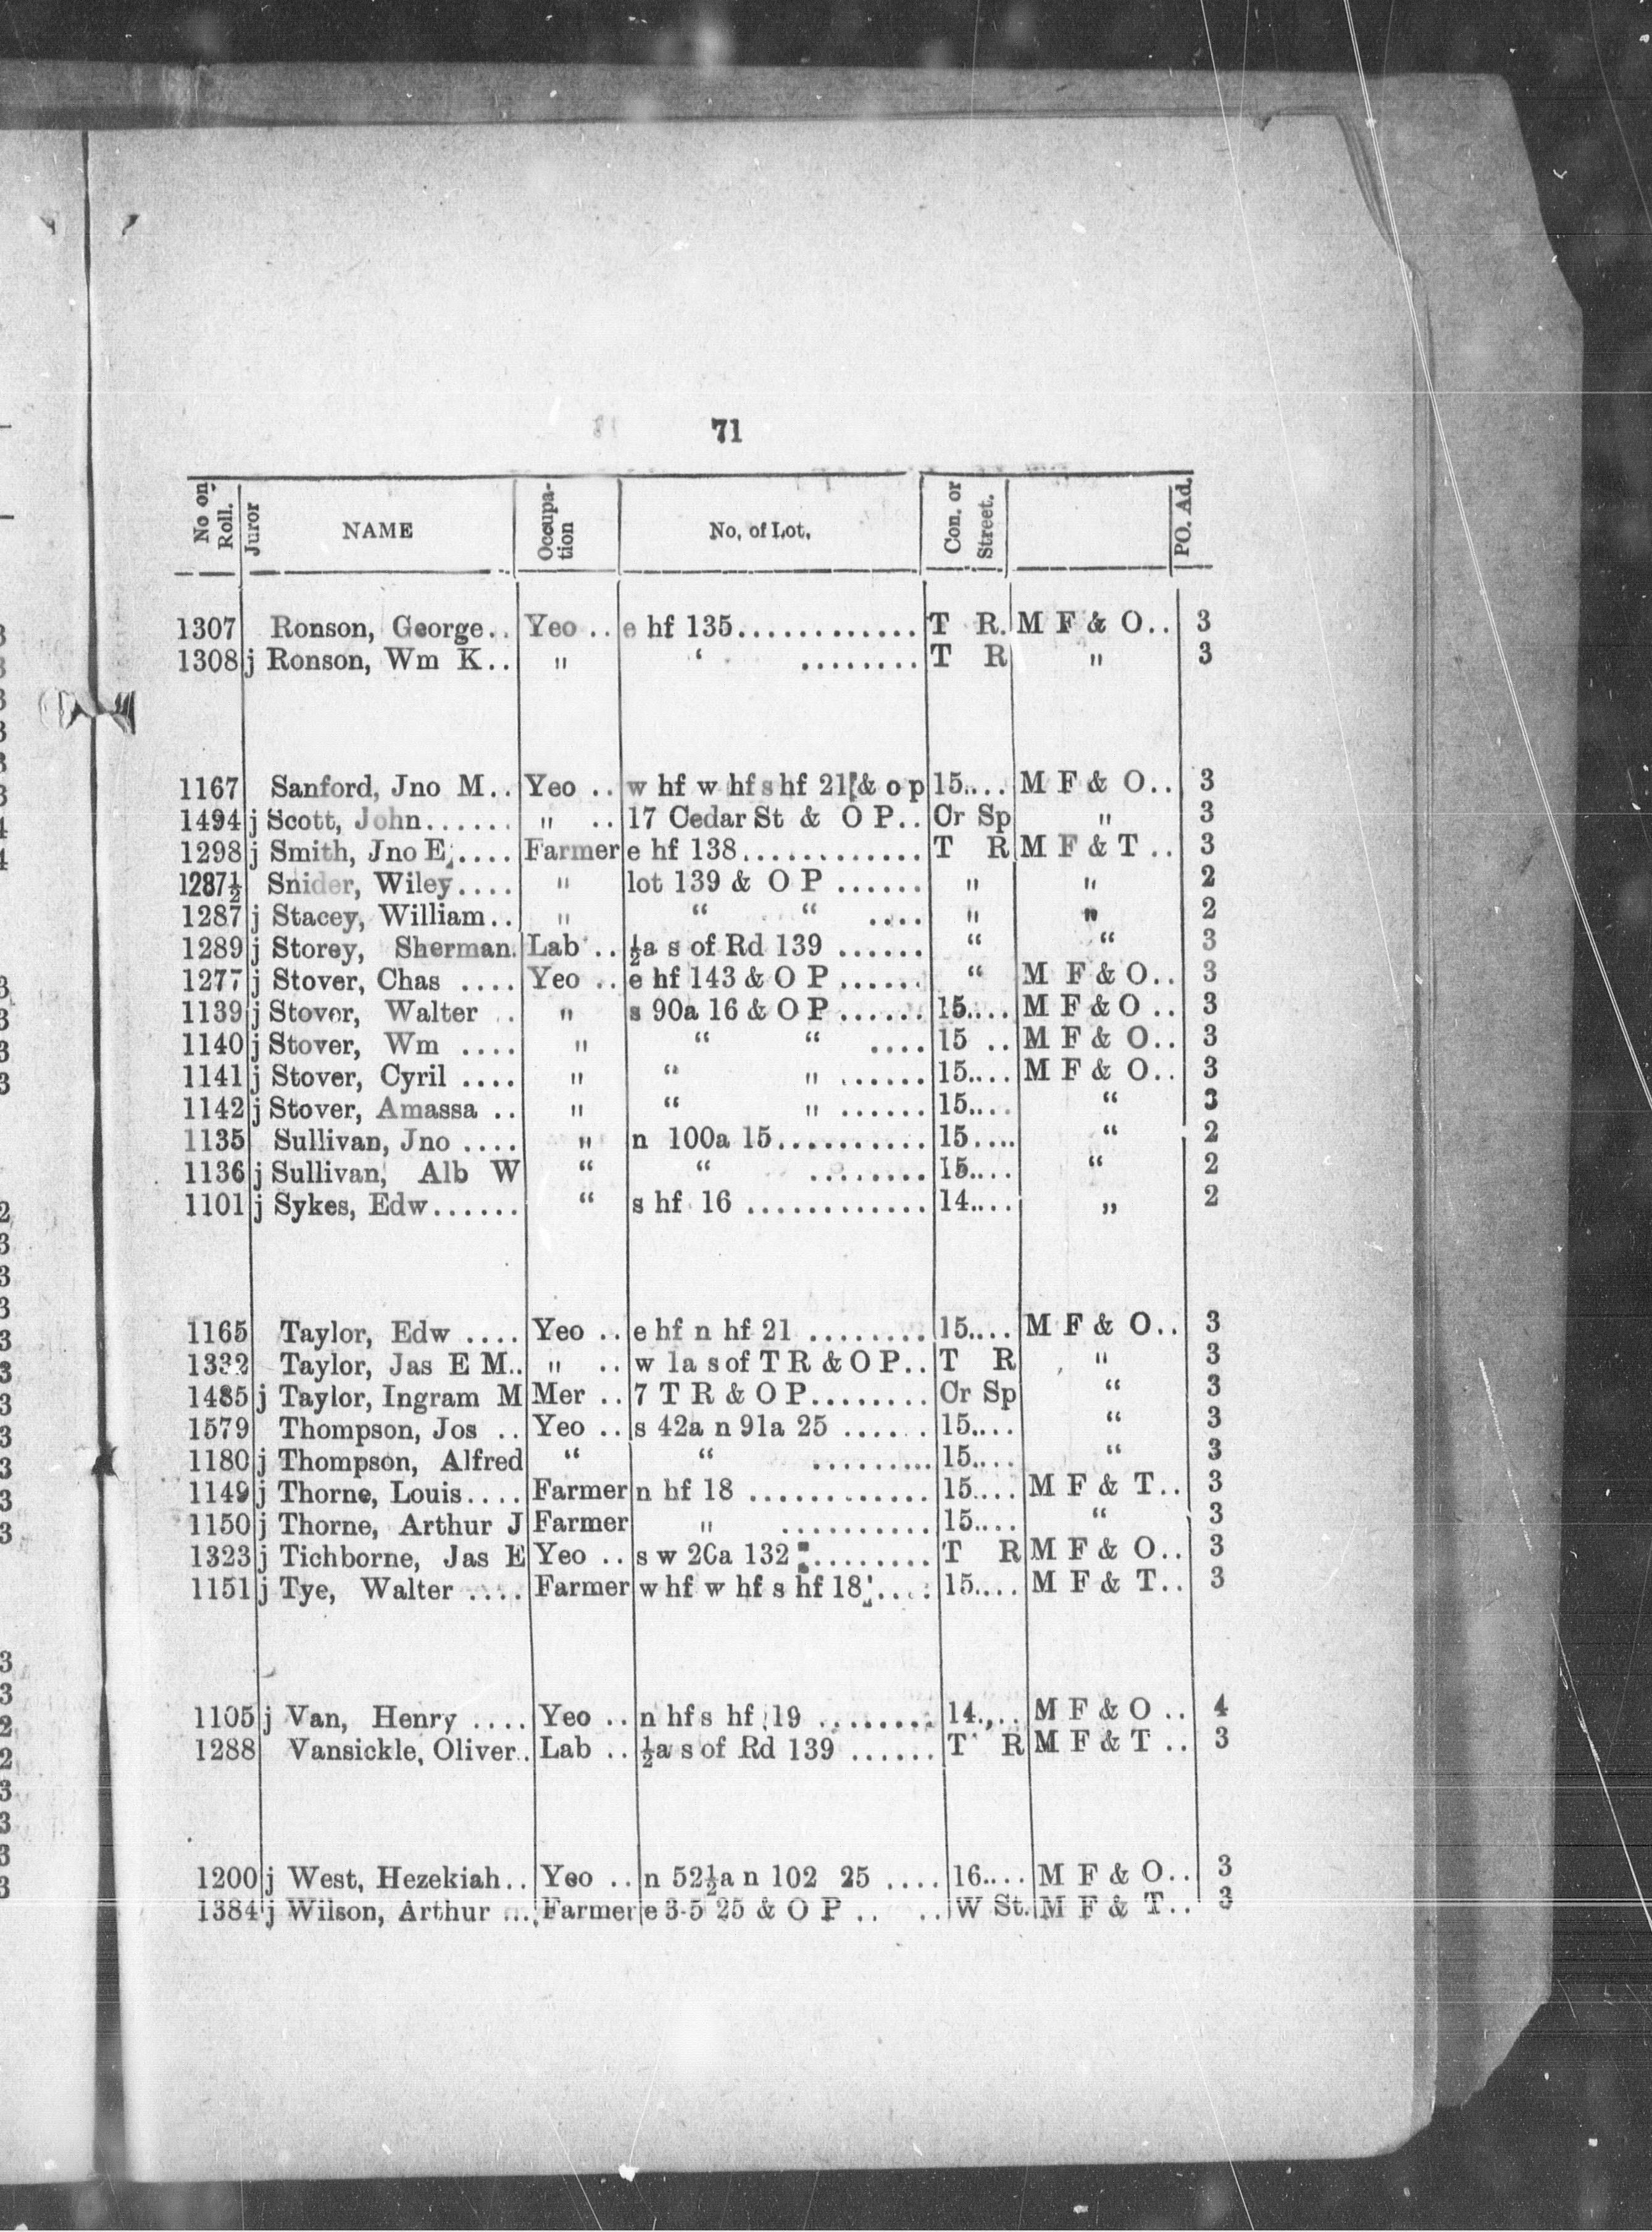 71
No on Roll. Juror NAME Occupa-tion No, of Lot, Con. or Street. PO. Ad.
1307 Ronson, George.. Yeo .. e hf 135............ T R. M F & O.. 3
1308 j Ronson, Wm K.. " ‘ ........ T R " 3
1167 Sanford, Jno M.. Yeo .. w hf w hf s hf 21[& o p 15.... M F & O.. 3
1494 j Scott, John...... " .. 17 Cedar St & O P.. Cr Sp " 3
1298 j Smith, Jno E.... Farmer e hf 138............ T R M F & T .. 3
1287½ Snider, Wiley.... " lot 139 & O P ...... " " 2
1287 j Stacey, William.. " “ “ .... " " 2
1289 j Storey, Sherman. Lab .. ½a s of Rd 139 ...... “ “ 3
1277 j Stover, Chas .... Yeo .. e hf 143 & O P...... “ M F & O.. 3
1139 j Stover, Walter .. " s 90a 16 & O P...... 15.... M F & O .. 3
1140 j Stover, Wm .... " “ “ .... 15 .. M F & O.. 3
1141 j Stover, Cyril .... " “ " ...... 15.... M F & O.. 3
1142 j Stover, Amassa .. " “ " ...... 15.... “ 3
1135 Sullivan, Jno .... " n 100a 15.......... 15.... “ 2
1136 j Sullivan, Alb W “ “ ........ 15.... “ 2
1101 j Sykes, Edw...... “ s hf 16 ............ 14.... „ 2
1165 Taylor, Edw .... Yeo .. e hf n hf 21 ........ 15.... M F & O.. 3
1332 Taylor, Jas E M.. " .. w 1a s of T R & O P.. T R " 3
1485 j Taylor, Ingram M Mer .. 7 T R & O P........ Cr Sp “ 3
1579 Thompson, Jos .. Yeo .. s 42a n 91a 25 ...... 15.... “ 3
1180 j Thompson, Alfred “ “ ......... 15.... “ 3
1149 j Thorne, Louis.... Farmer n hf 18 ............ 15.... M F & T.. 3
1150 j Thorne, Arthur J Farmer " .......... 15.... “ 3
1323 j Tichborne, Jas E Yeo .. s w 20a 132 ........ T R M F & O.. 3
1151 j Tye, Walter .... Farmer w hf w hf s hf 18.... 15.... M F & T.. 3
1105 j Van, Henry .... Yeo .. n hf s hf 19 ........ 14.,.. M F & O .. 4
1288 Vansickle, Oliver.. Lab .. ½a s of Rd 139 ...... T R M F & T .. 3
1200 j West, Hezekiah.. Yeo .. n 52½a n 102 25 .... 16.... M F & O.. 3
1384 j Wilson, Arthur ... Farmer e 3-5 25 & O P .. .. W St. M F & T.. 3